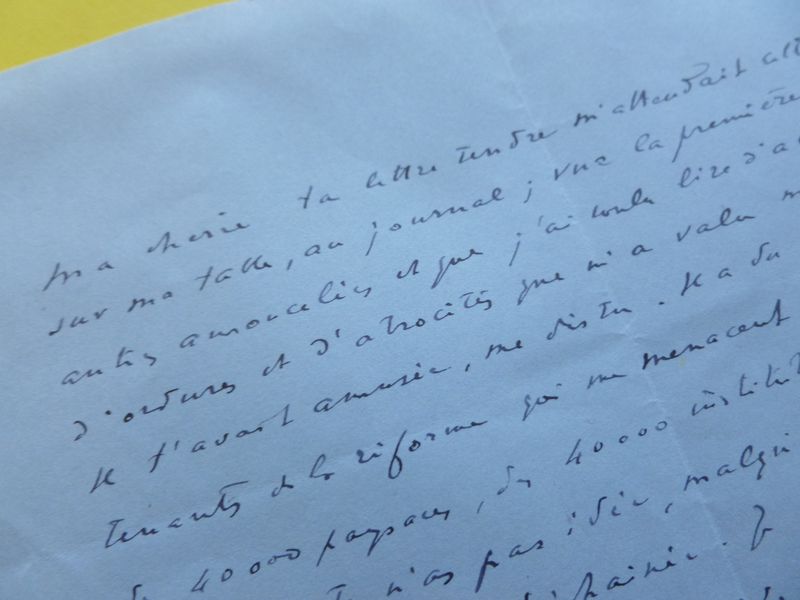 ma cherie ta lettre tendre m'attendait
sur ma table, au journal ; vue la première
autres amoncelées et que j'ai voulu lire d'a
d'ordures et d'atrocités que m'a valu
Il t'avait amusée, me dis tu. Il a du
tenants de la réforme qui me menacent
de 40000 paysans, des 40000 institut
n'as pas idée, malgré